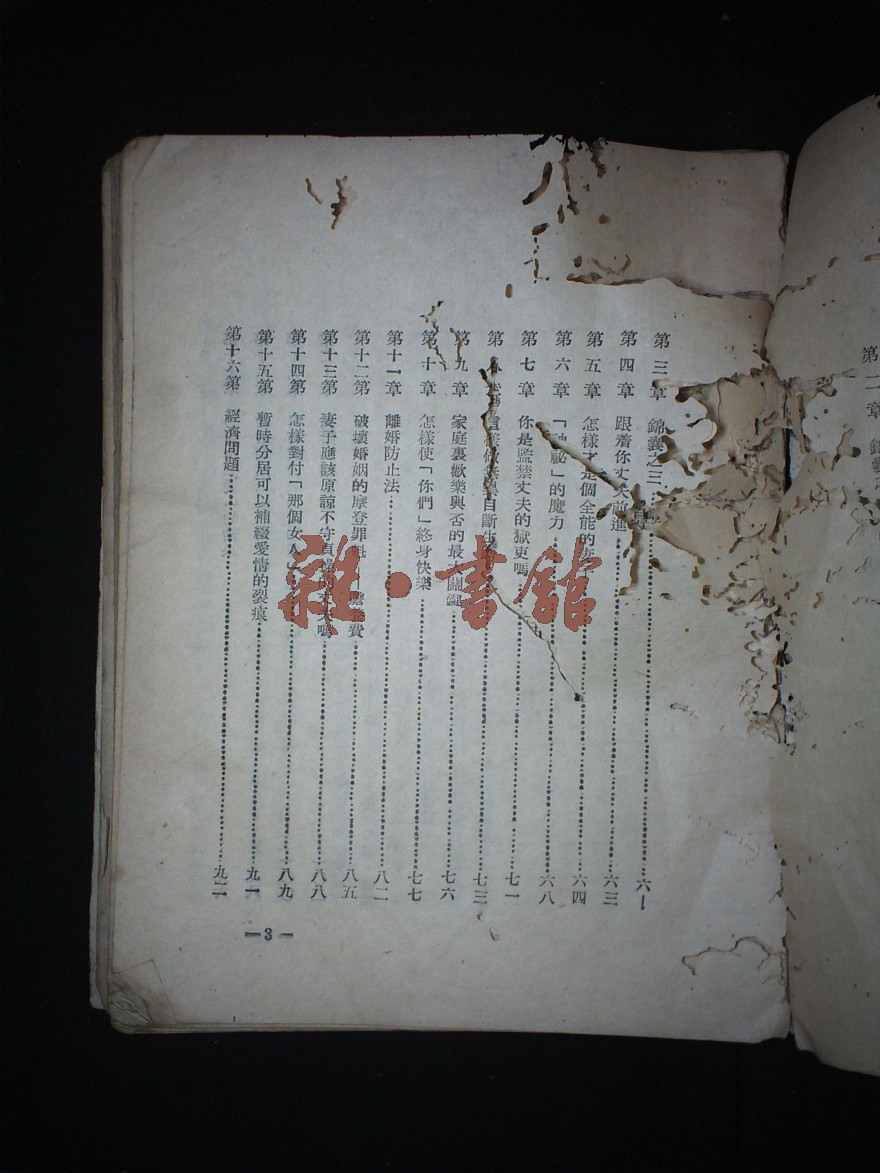 第三章 錦囊之三 六一
第四章 跟着你丈夫前進 六三
第五章 怎樣才是個全能的妻 六四
第六章 「神秘」的魔力 六八
第七章 你是監禁丈夫的獄吏嗎 七一
第 這樣做 自斷生 七三
第九章 家庭裏歡樂與否的最大關鍵 七六
第十章 怎樣使「你們」終身快樂 七七
第十一章 離婚防止法 八二
第十二第 破壞婚姻的摩登罪魁 費 八五
第十三第 妻子應該原諒不守貞操的丈夫嗎 八八
第十四第 怎樣對付「那個女人」 八九
第十五第 暫時分居可以補綴愛情的裂痕 九一
第十六第 經濟問題 九二
—3—
第二章
雜·書館